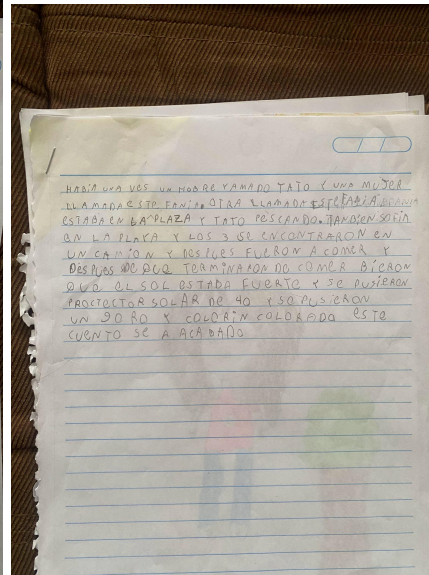 HABÍA UNA VES UN HOBRE YAMADO TATO Y UNA MUJER
LLAMADA ESTEFANIA. OTRA LLAMADA
ESTABA EN LA PLAZA Y TATO PESCANDO. TANBIEN SOFIA
EN LA PLAYA Y LOS 3 SE ENCONTRARON EN
UN CAMIÓN Y DESPUES FUERON A COMER Y
DESPUES DE QUE TERMINARON DE COMER BIERON
QUE EL SOL ESTADA FUERTE Y SE PUSIERON
PROCTECTOR SOLAR DE 40 Y SE PUSIERON
UN GORO Y COLORIN COLORADO ESTE
CUENTO SE A ACABADO